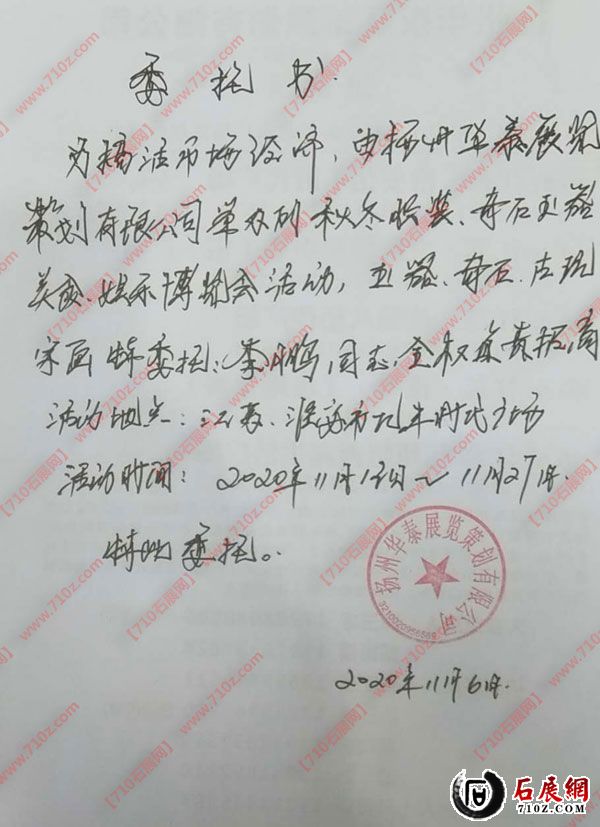 委托书.
为搞活市场经济,由扬州华泰展览
策划有限公司举办的秋冬服装、奇石玉器
美食、娱乐博览会活动,玉器、奇石、古玩
字画特委托:李鹏,同志,全权负责招商
活动地点:江苏.淮安市 时代广场
活动时间:2020年11月13日~11月27日.
特此委托。
扬州华泰展览策划有限公司
2020年11月6日.
【710石展网】 www.710z.com
石展網
710Z.COM